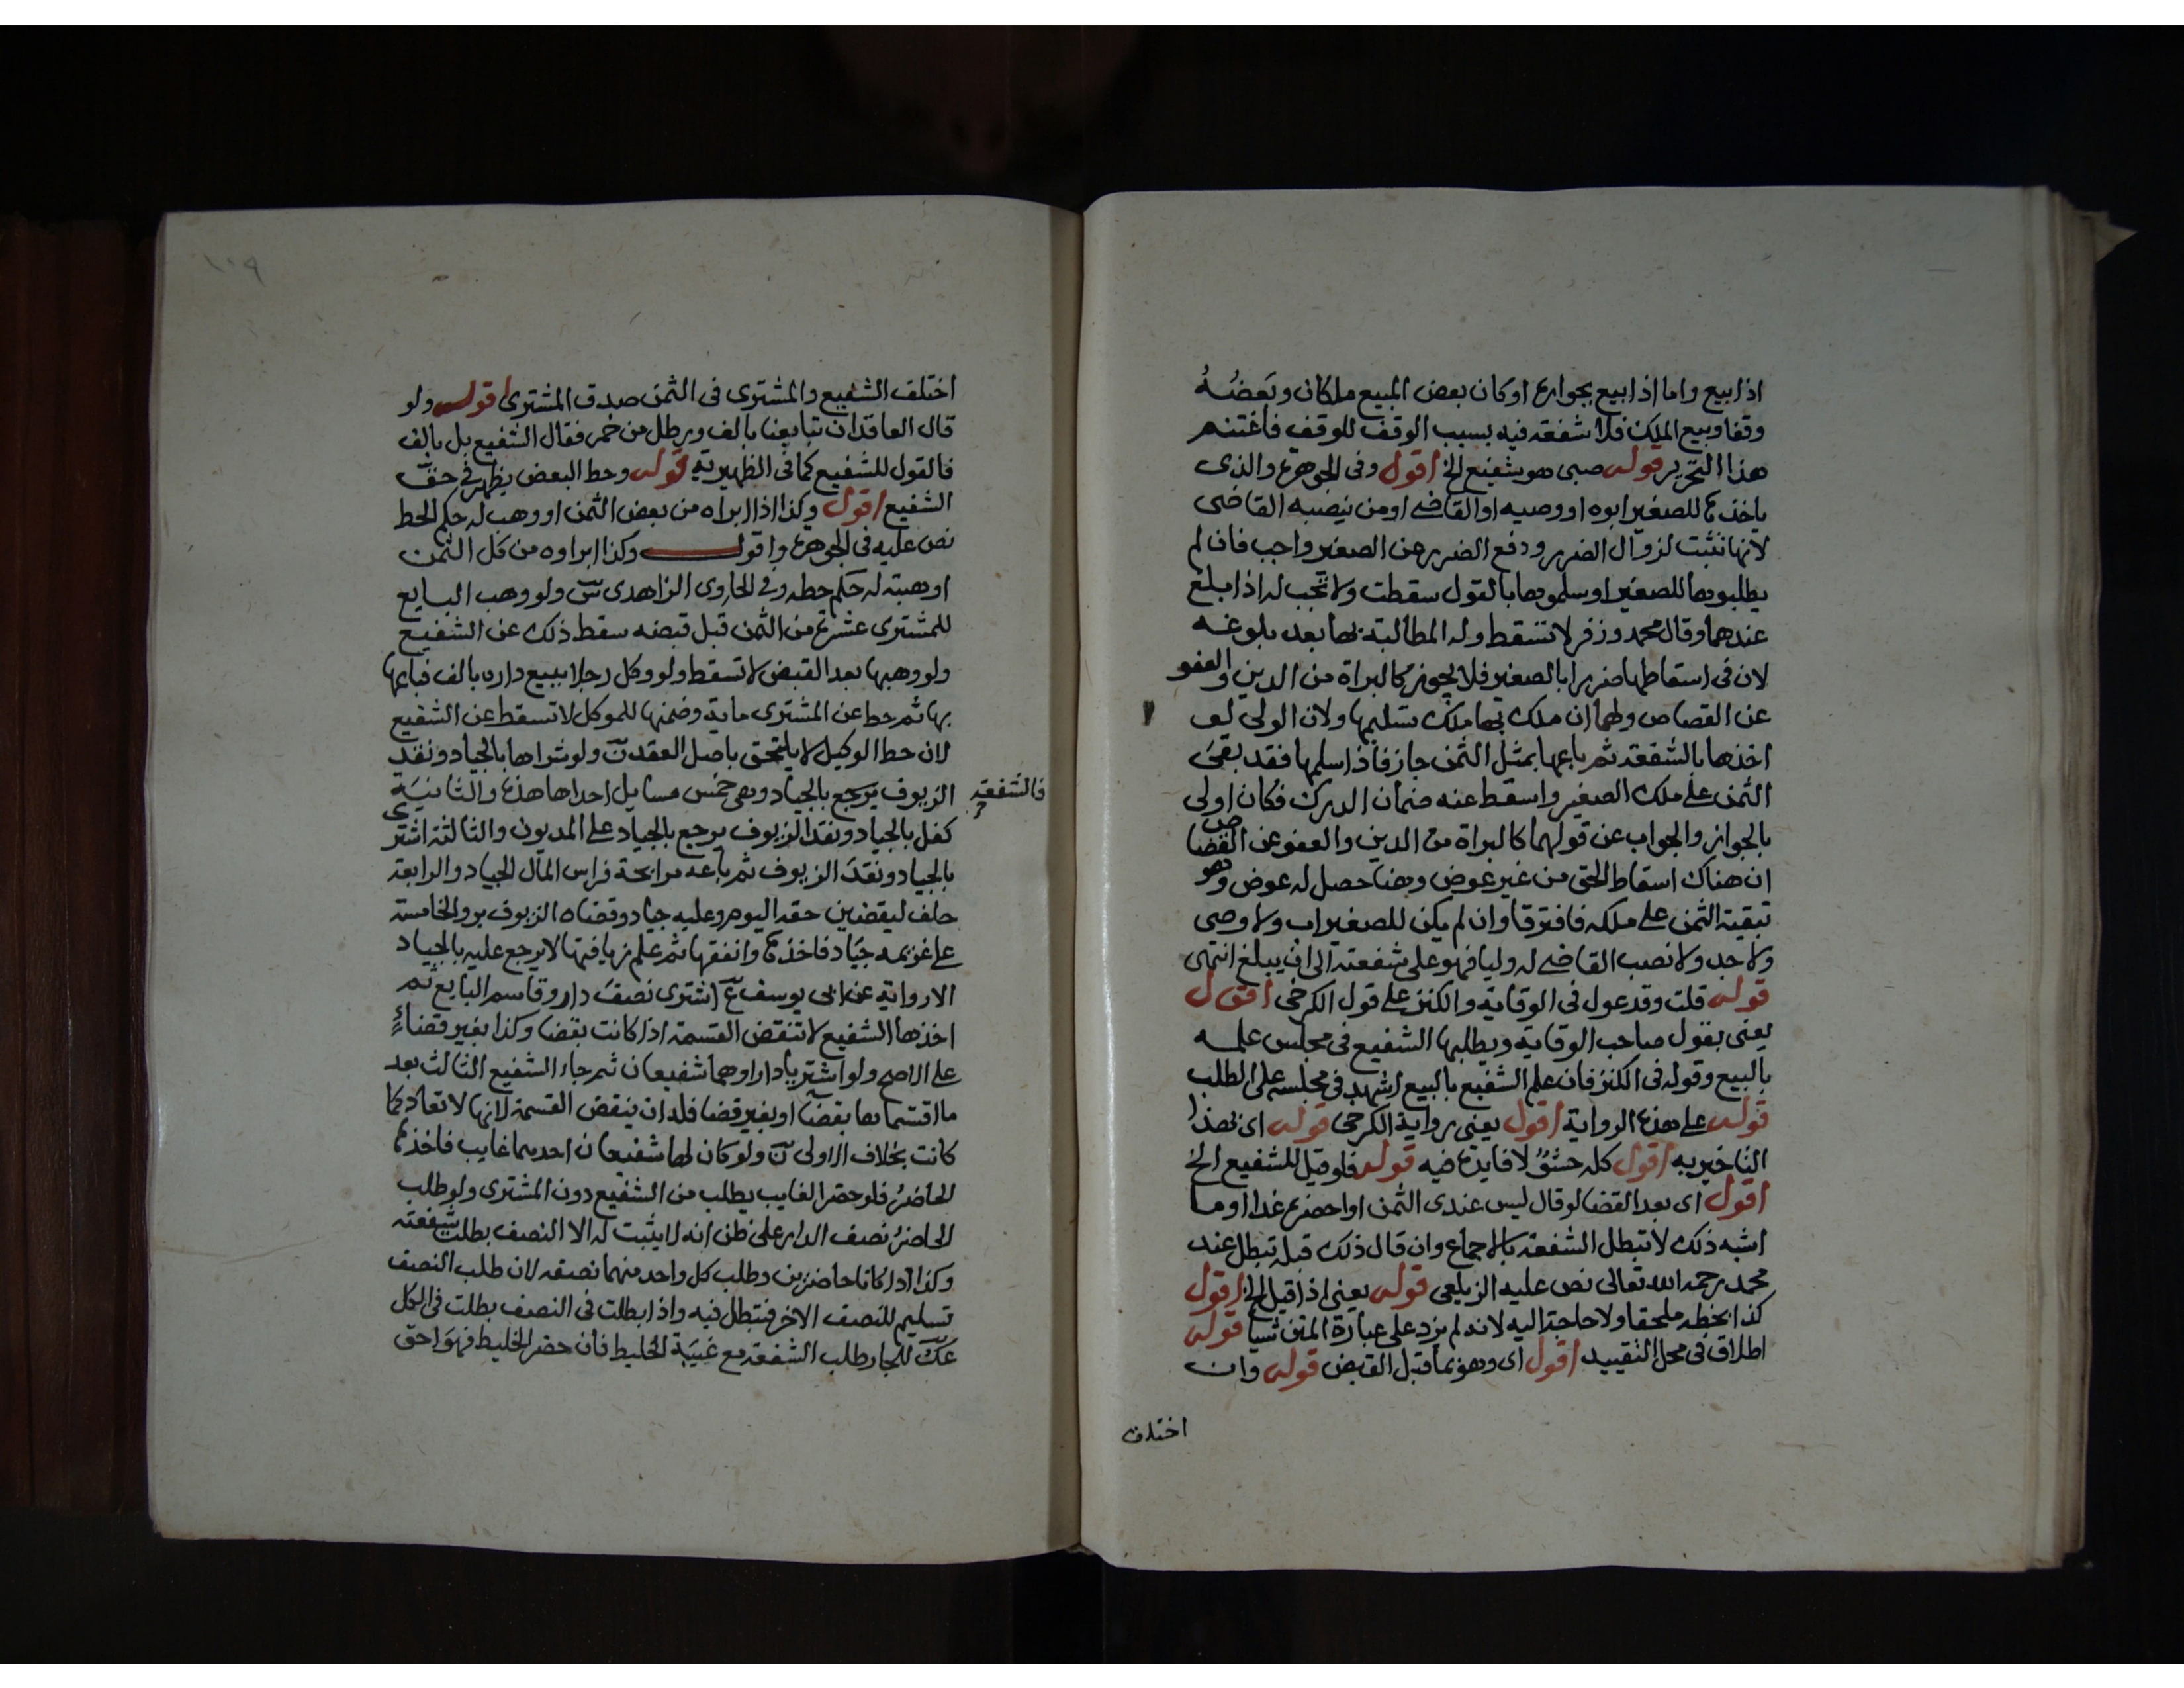 اذا بيع واما اذا بيع بجواره او كان بعض المبيع ملكان وبعضه
وقفا وبيع الملك فلا شفعة فيه بسبب الوقف للوقف فاغتنم
هذا التحرير قوله صبى هو شفيع الخ اقول وفى الجوهرة والذى
ياخذها للصغير ابوه او وصيه او القاضى او من ينصبه القاضى
لانها تثبت لزوال الضرر ودفع الضرر عن الصغير واجب فان لم
يطلبوها للصغير او سلموها بالقول سقطت ولا تجب له اذا بلغ
عندهما وقال محمد وزفر لا تسقط وله المطالبة بها بعد بلوغه
لان فى اسقاطها ضررا بالصغير فلا يجوز كالبراة من الدين والعفو
عن القصاص ولهما ان ملك بها ملك تسليمها ولان الولى لو
اخذها بالشفعة ثم باعها بمثل الثمن جاز فاذا سلمها فقد بقى
الثمن على ملك الصغير واسقط عنه ضمان الدرك فكان اولى
بالجواز والجواب عن قولهما كالبراة من الدين والعفو عن القصاص
ان هناك اسقاط الحق من غير عوض وهنا حصل له عوض وهو
تبقية الثمن على ملكه فافترقا وان لم يكن للصغير اب ولا وصى
ولا جد ولا نصب القاضى له وليا فهو على شفعته الى ان يبلغ انتهى
قوله قلت وقد عول فى الوقاية والكنز على قول الكرخى اقول
يعنى بقول صاحب الوقاية ويطلبها الشفيع فى مجلس علمه
بالبيع وقوله فى الكنز فان علم الشفيع بالبيع اشهد فى مجلسه على الطلب
قوله على هذه الرواية اقول يعنى رواية الكرخى قوله اى بهذا
التاخير به اقول كله حشو لا فايدة فيه قوله فلو قيل للشفيع الخ
اقول اى بعد القضا لو قال ليس عندى الثمن او احضره غدا او ما
اشبه ذلك لا تبطل الشفعة بالاجماع وان قال ذلك قبله تبطل عند
محمد رحمه الله تعالى نص عليه الزيلعى قوله يعنى اذا قيل الخ اقول
كذا بخطه ملحقا ولا حاجة اليه لانه لم يزد على عبارة المتن شيا قوله
اطلاق فى محل التقييد اقول اى وهو بما قبل القبض قوله وان
اختلف
١٠٩
اختلف الشفيع والمشترى فى الثمن صدق المشترى اقول ولو
قال العاقدان تبايعنا بالف وبرطل من خمر فقال الشفيع بل بالف
فالقول للشفيع كما فى الظهيرية قوله وحط البعض يظهر فى حق
الشفيع اقول وكذا اذا ابراه من بعض الثمن او وهب له حكم الحط
نص عليه فى الجوهرة واقول وكذا ابراوه من كل الثمن
او هبته له حكم حطه وفى الحاوى الزاهدى ولو وهب البايع
للمشترى عشرة من الثمن قبل قبضه سقط ذلك عن الشفيع
ولو وهبها بعد القبض لا تسقط ولو وكل رجلا ببيع داره بالف فباعها
بها ثم حط عن المشترى ماية وضمنها للموكل لا تسقط عن الشفيع
لان حط الوكيل لا يلتحق باصل العقد ولو شراها بالجياد ونقد
الزيوف فالشفعة يرجع بالجياد وهى خمس مسايل احداها هذه والثانية
كفل بالجياد ونقد الزيوف يرجع بالجياد على المديون والثالثة اشترى
بالجياد ونقد الزيوف ثم باعه مرابحة فراس المال الجياد والرابعة
حلف ليقضين حقه اليوم وعليه جياد وقضاه الزيوف بر والخامسة
على غريمه جياد فاخذها وانفقها ثم علم زيافتها لا يرجع عليه بالجياد
الا رواية عن ابى يوسف اشترى نصف دار وقاسم البايع ثم
اخذها الشفيع لا تنقض القسمة اذا كانت بقضا وكذا بغير قضاء
على الاصح ولو اشتريا دارا وهما شفيعان ثم جاء الشفيع الثالث بعد
ما اقتسماها بقضا او بغير قضا فله ان ينقض القسمة لانها لا تعاد كما
كانت بخلاف الاولى ولو كان لها شفيعان احدهما غايب فاخذها
الحاضر فلو حضر الغايب يطلب من الشفيع دون المشترى ولو طلب
الحاضر نصف الدار على ظن انه لا يثبت له الا النصف بطلت شفعته
وكذا اذا كانا حاضرين وطلب كل واحد منهما نصفه لان طلب النصف
تسليم للنصف الاخر فتبطل فيه واذا بطلت فى النصف بطلت فى الكل
للجار طلب الشفعة مع غيبة الخليط فان حضر الخليط فهو احق